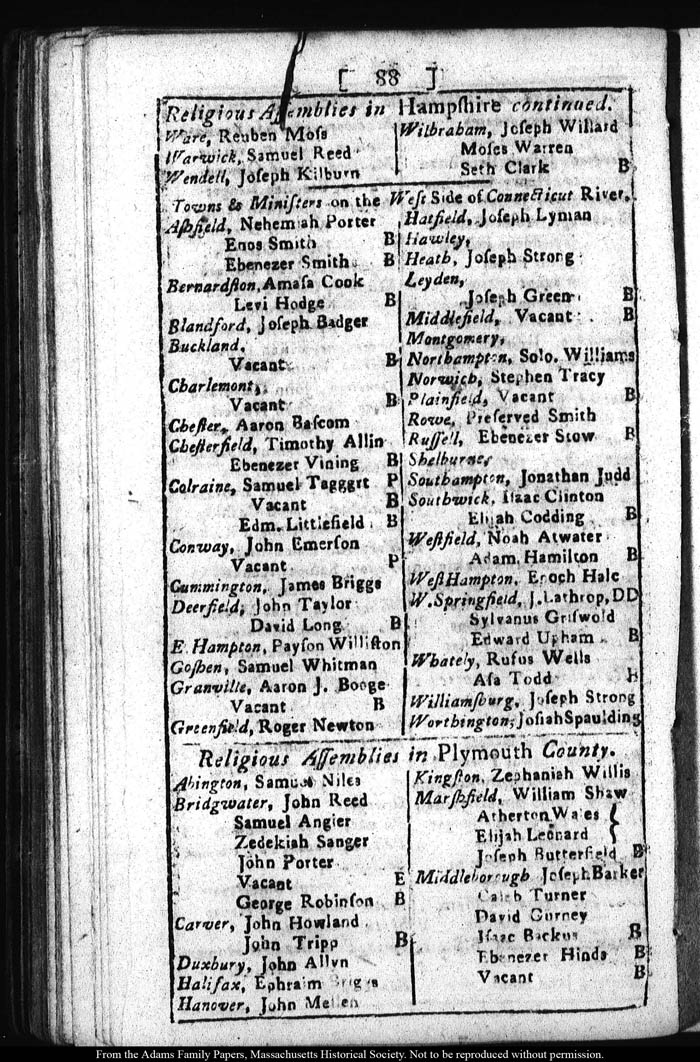 [ 88 ]
Religious Aſſemblies in Hampſhire continued.
Ware, Reuben Moſs
Warwick, Samuel Reed
Wendell, Joſeph Kilburn
Wilbraham, Joſeph Willard
Moſes Warren
Seth Clark B
Towns & Miniſters on the Weſt Side of Connecticut River.
Aſhfield, Nehemiah Porter
Enos Smith B
Ebenezer Smith B
Bernardſton, Amaſa Cook
Levi Hodge B
Blandford, Joſeph Badger
Buckland,
Vacant B
Charlemont,
Vacant B
Cheſter, Aaron Baſcom
Cheſterfield, Timothy Allin
Ebenezer Vining B
Colraine, Samuel Tagggrt P
Vacant B
Edm. Littlefield B
Conway, John Emerſon
Vacant P
Cummington, James Briggs
Deerfield, John Taylor
David Long B
E. Hampton, Payſon Williſton
Goſhen, Samuel Whitman
Granville, Aaron J. Booge
Vacant B
Greenfield, Roger Newton
Hatfield, Joſeph Lyman
Hawley,
Heath, Joſeph Strong
Leyden,
Joſeph Green B
Middlefield, Vacant B
Montgomery,
Northampton, Solo. Williams
Norwich, Stephen Tracy
Plainfield, Vacant B
Rowe, Preſerved Smith
Ruſſell, Ebenezer Stow B
Shelburne,
Southampton, Jonathan Judd
Southwick, Iſaac Clinton
Elijah Codding B
Weſtfield, Noah Atwater
Adam Hamilton B
Weſt Hampton, Enoch Hale
W. Springfield, J. Lathrop, DD
Sylvanus Griſwold
Edward Upham B
Whately, Rufus Wells
Aſa Todd B
Williamſburg, Joſeph Strong
Worthington, Joſiah Spaulding
Religious Aſſemblies in Plymouth County.
Abington, Samuel Niles
Bridgwater, John Reed
Samuel Angier
Zedekiah Sanger
John Porter
Vacant E
George Robinſon B
Carver, John Howland
John Tripp B
Duxbury, John Allyn
Halifax, Ephraim Briggs
Hanover, John Mellen
Kingſton, Zephaniah Willis
Marſhfield, William Shaw
Atherton Wales }
Elijah Leonard }
Joſeph Butterfield B
Middleborough Joſeph Barker
Caleb Turner
David Gurney
Iſaac Backus B
Ebenezer Hinds B
Vacant B
From the Adams Family Papers, Massachusetts Historical Society. Not to be reproduced without permission.